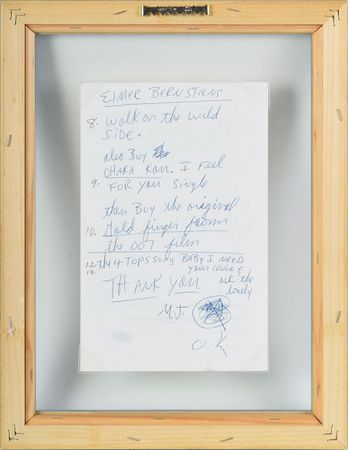 ELMER BERNSTIENS
8. Walk on the wild
Side.
also Buy
CHAKA Kan. I Feel
9. FOR you Single
then Buy the original
10. Gold finger from
the 007 film
12. the 4 TOPS song BABY I NEED
13. your loving
THANK YOU ask the
lonely
MJ.
O.K